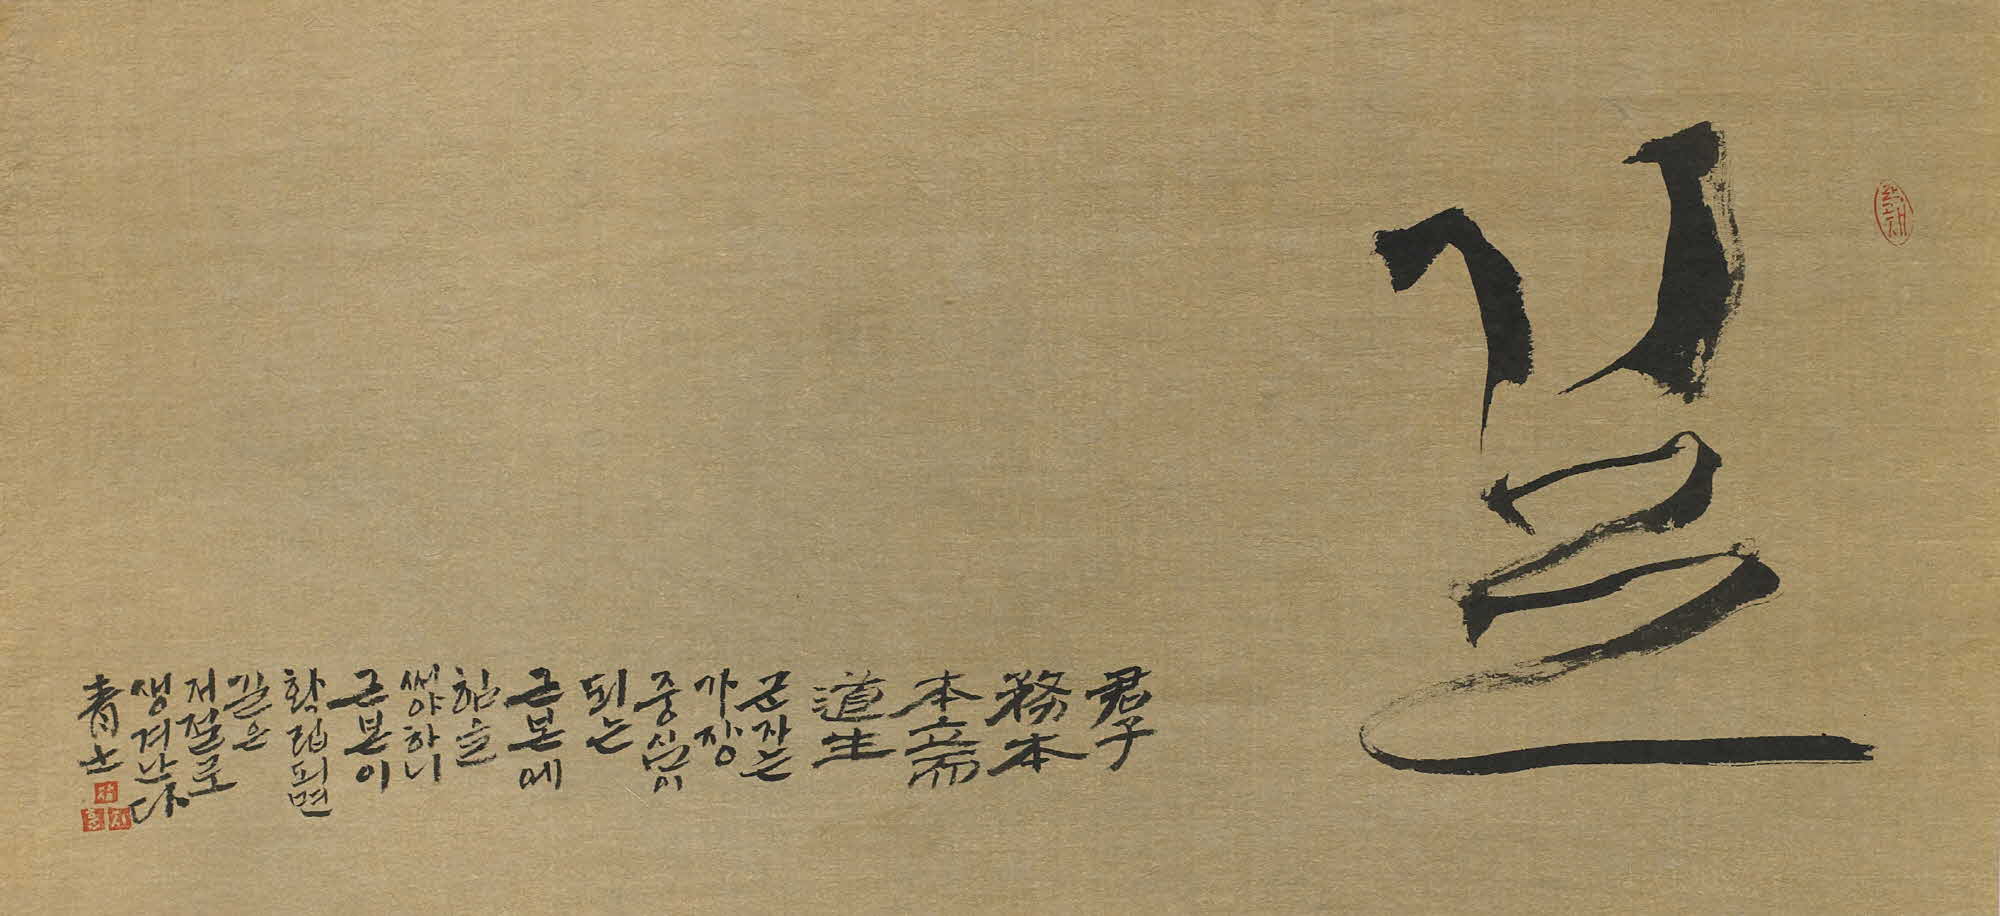 길
君子
務本
本立而
道生
군자는
가장
중심이
되는
근본에
힘을
써야하니
근본이
확립되면
길은
저절로
생겨난다
靑士